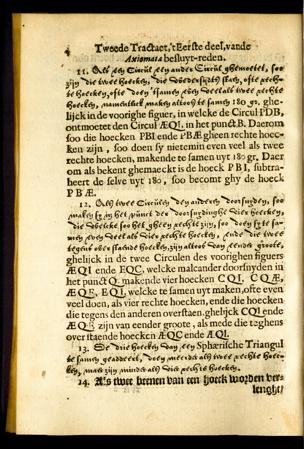 4 Tweede Tractaet, 't Eerste deel, vande
Axiomata besluyt-reden.
11. Als een Circul een ander Circul ghemoetet, soo
zijn die twee hoecken, die
hoecken, ofte doen samen even veel als twee rechte
hoecken, namentlick maken altoos te samen 180 gr. ghe-
lijck in de voorighe figuer, in welcke de Circul PDB,
ontmoetet den Circul ÆQI. in het punct B. Daerom
soo die hoecken PBI ende PBÆ gheen rechte hoec-
ken zijn, soo doen sy nietemin even veel als twee
rechte hoecken, makende te samen uyt 180 gr. Daer
om als bekent ghemaeckt is de hoeck PBI, subtra-
heert de selve uyt 180, soo becomt ghy de hoeck
PBÆ.
12. Alsoo twee Circulen den anderen doorsnyden, soo
maken sy in het punct der doorsnydinghe vier hoecken,
die welcke soo het gheen rechte zijn, soo doen sy te sa-
men even veel als vier rechte hoecken, ende die twee
teghen over staende hoecken, zijn altoos even groote,
ghelijck in de twee Circulen des voorighen figuers
ÆQI ende EQC, welke malcander doorsnyden in
het punct Q makende vier hoecken CQI, CQÆ,
ÆQE, EQI, welcke te samen uyt maken, ofte even
veel doen, als vier rechte hoecken, ende die hoecken
die tegens den anderen overstaen, ghelijck CQI ende
ÆQE zijn van eender groote, als mede die teghens
over staende hoecken ÆQC ende ÆQI.
13. De drie hoecken van een Sphærische Triangul
te samen geaddeert, doen meerder als twee rechte hoec-
ken, maer zijn minder als vier rechte hoecken.
14. Als twee beenen van een hoeck worden ver-
lenght